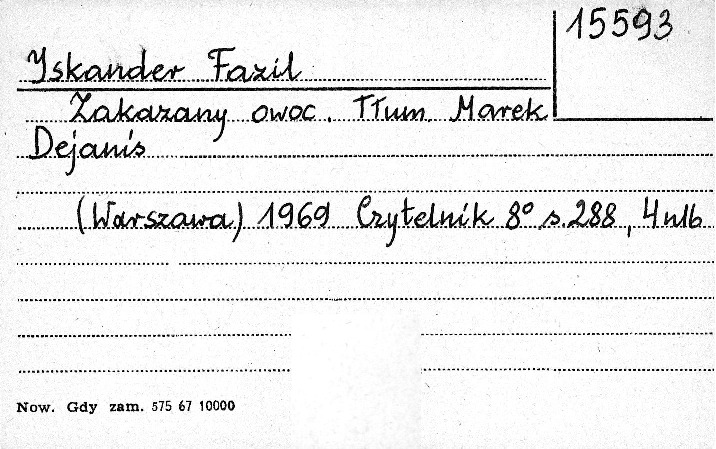 15593
Yskander Fazil
Zakazany owoc. Tłum Marek
Dejanis
(Warszawa) 1969 Czytelnik 8° s. 288, 4 nlb
Now. Gdy zam. 575 67 10000